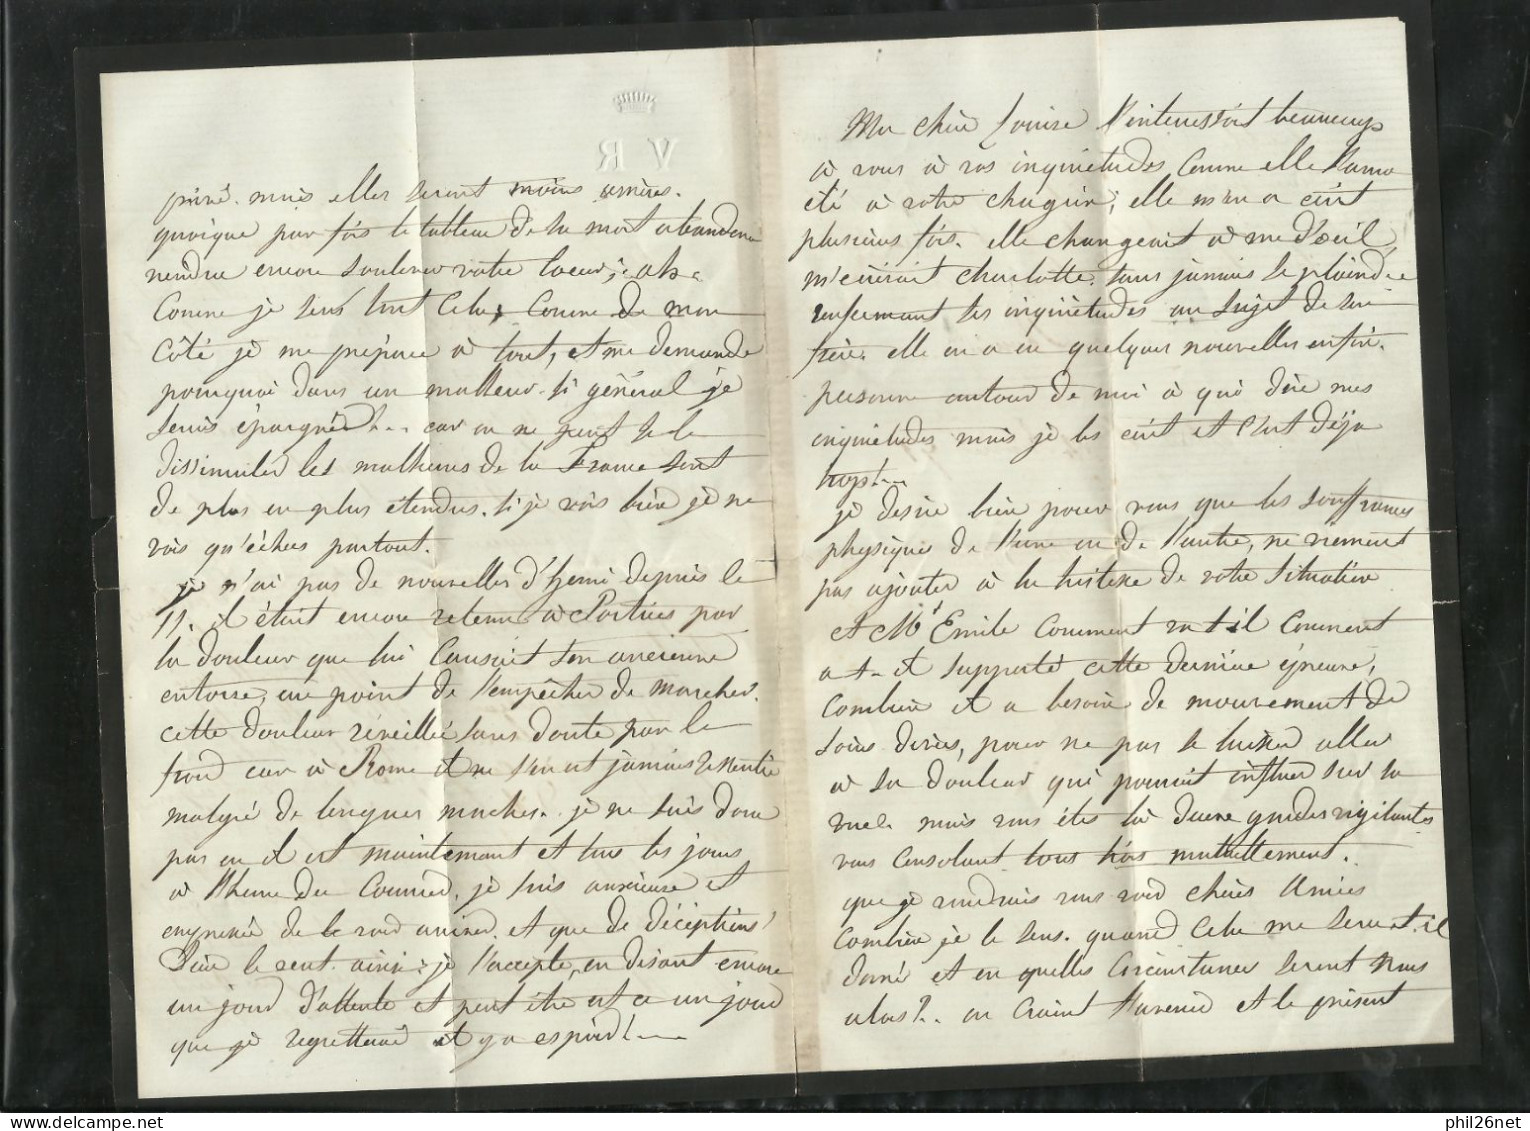 V R
mais elles seront moins amères.
quoique par fois le tableau de sa mort
encore soulever votre coeur; ah
Comme je sens tout cela; Comme de mon
côté je me prépare à tout, et me demande
pourquoi dans un malheur si général je
serais épargnée... car on ne peut se le
dissimuler les malheurs de la France sont
de plus en plus étendus. si je vois bien je ne
vois qu'échecs partout.
je n'ai pas de nouvelles d'henri depuis le
11. il était encore retenu à Poitiers par
la douleur que lui Causait son ancienne
entorse, au point de l'empêcher de marcher.
cette douleur réveillée sans doute par le
froid car à Rome il ne s'en est jamais ressentie
malgré de longues marches. je ne sais donc
pas où il est maintenant et tous les jours
à l'heure du Courrier, je suis anxieuse et
de le voir arriver. et que de déceptions!
Dieu le veut ainsi; je l'accepte, en disant encore
un jour d'attente et peut être est ce un jour
que je regretterai et j'en espère!...
Ma chère Louise s'intéressait beaucoup
à vous à vos inquiétudes Comme elle l'aura
été à votre chagrin; elle m'en a écrit
plusieurs fois. elle changeait à vue d'oeil,
m'écrivait Charlotte. sans jamais se plaindre
renfermant ses inquiétudes au sujet de son
frère. elle en a eu quelques nouvelles enfin.
personne autour de moi à qui dire mes
inquiétudes mais je les écrit et c'est déjà
trop!...
je désire bien pour vous que les souffrances
physiques de l'une ou de l'autre, ne viennent
pas ajouter à la tristesse de votre situation
et Mr Emile Comment va t-il Comment
a-t-il supporté cette dernière épreuve,
Combien il a besoin de mouvement de
soins divers, pour ne pas se laisser aller
à sa douleur qui pourrait influer sur sa
vue. mais vous êtes là deux gardes vigilantes
vous Consolant tous trois mutuellement.
que je voudrais vous voir chères Amies
Combien je le sens. quand Cela me sera-t-il
donné et en quelles Circonstances serons nous
alors?.. on Craint l'avenir et le présent
phil26net